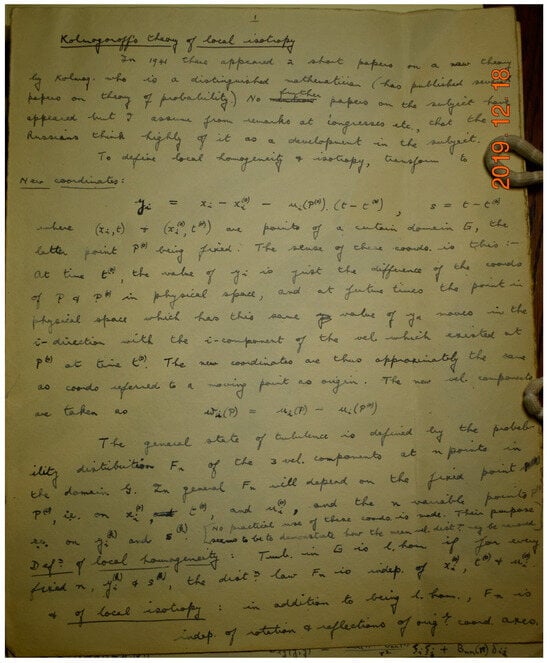 1
Kolmogoroff's theory of local isotropy
In 1941 there appeared 2 short papers on a new theory
by Kolmog. who is a distinguished mathematician (has published several
papers on theory of probability) No further papers on the subject have
appeared but I assume from remarks at congresses etc, that the
Russians think highly of it as a development in the subject.
To define local homogeneity & isotropy, transform to
New coordinates:
yi = xi - xi(0) - ui(P(0)).(t - t(0)), s = t - t(0)
where (xi,t) & (xi(0),t(0)) are points of a certain domain G, the
latter point P(0) being fixed. The sense of these coords. is this :-
At time t(0), the value of yi is just the difference of the coords
of P & P(0) in physical space, and at future times the point in
physical space which has this same value of yi moves in the
i-direction with the i-component of the vel. which existed at
P(0) at time t(0). The new coordinates are thus approximately the same
as coords referred to a moving point as origin. The new vel. components
are taken as wi(P) = ui(P) - ui(P(0))
The general state of turbulence is defined by the probab-
ility distribution Fn of the 3 vel. components at n points in
the domain G. In general Fn will depend on the fixed point
P(0), i.e. on xi(0), t(0), and ui(0), and the n variable points
P(k), i.e. on yi(k) and s(k). [No practical use of these coords. is made. Their purpose
seems to be to demonstrate how the mean vel. dist? may be removed
Def? of local homogeneity : Turb. in G is l. hom. if for every
fixed n, yi(k) & s(k), the dist? law Fn is indep. of xi(0), t(0) & ui(0).
& of local isotropy : in addition to being l. hom., Fn is
indep. of rotation & reflections of orig? coord. axes.
2019.12.18